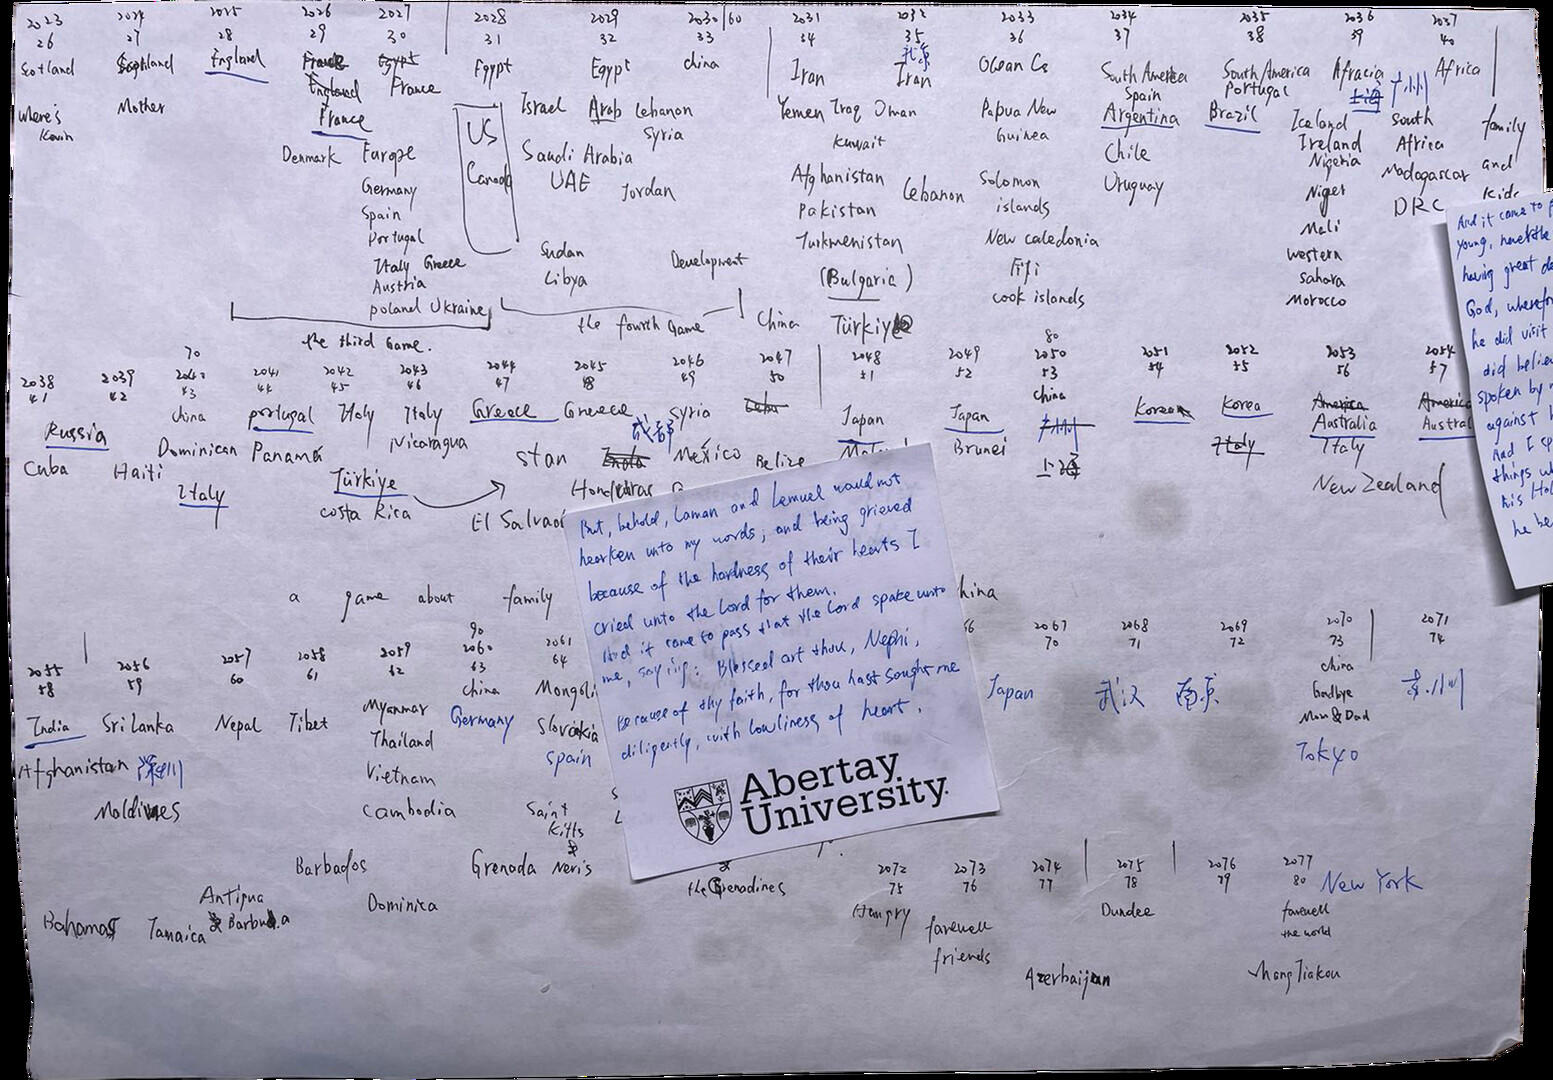 2023 2024 2025 2026 2027 2028 2029 2030/60 2031 2032 2033 2034 2035 2036 2037
26 27 28 29 30 31 32 33 34 35 36 37 38 39 40
Scotland Scotland England France Egypt Egypt Egypt china Iran 北京 Iran Ocean Cs South America South America Africa Africa
England France Spain Portugal 上海 广州
where's Kevin Mother France US Canada Israel Arab Lebanon Yemen Iraq Oman Papua New Guinea Argentina Brazil Iceland South Africa family
Denmark Europe Syria Kuwait Chile Ireland and
Germany Saudi Arabia Afghanistan Lebanon Solomon islands Uruguay Nigeria Madagascar kids
Spain UAE Jordan Pakistan Niger DRC
Portugal Turkmenistan New Caledonia Mali
Italy Greece Sudan Development (Bulgaria) Fiji western sahara
Austria Libya cook islands Morocco
poland Ukraine
the third Game. the fourth Game China Türkiye
70 80
2038 2039 2040 2041 2042 2043 2044 2045 2046 2047 2048 2049 2050 2051 2052 2053 2054
41 42 43 44 45 46 47 48 49 50 51 52 53 54 55 56 57
Russia china portugal Italy Italy Greece Greece Syria Cuba Japan Japan china Korea Korea America America
成都 广州 Australia
Cuba Haiti Dominican Panama Nicaragua stan India México Belize Brunei 上海 Italy Italy
Italy Türkiye Honduras New Zealand
costa Rica El Salvador
a game about family
But, behold, Laman and Lemuel would not
hearken unto my words; and being grieved
because of the hardness of their hearts I
cried unto the Lord for them.
And it came to pass that the Lord spake unto
me, saying: Blessed art thou, Nephi,
because of thy faith, for thou hast sought me
diligently, with lowliness of heart.
Abertay
University.
And it came to
young, neverthe
having great de
God, wherefor
he did visit
did believe
spoken by
against
And I sp
things wh
his Hol
he be
90
2055 2056 2057 2058 2059 2060 2061 2067 2068 2069 2070 2071
58 59 60 61 62 63 64 70 71 72 73 74
India Sri Lanka Nepal Tibet Myanmar china Mongoli Japan 武汉 南京 china
Germany Goodbye
Afghanistan 深圳 Thailand Slovakia Mom & Dad
Vietnam Spain Tokyo
Moldives Cambodia Saint Kitts
&
Barbados Grenada Neris the Grenadines
2072 2073 2074 2075 2076 2077
75 76 77 78 79 80 New York
Antigua Dominica Hungry farewell Dundee farewell
Bahamas Jamaica & Barbuda friends the world
Azerbaijan zhangJiakou